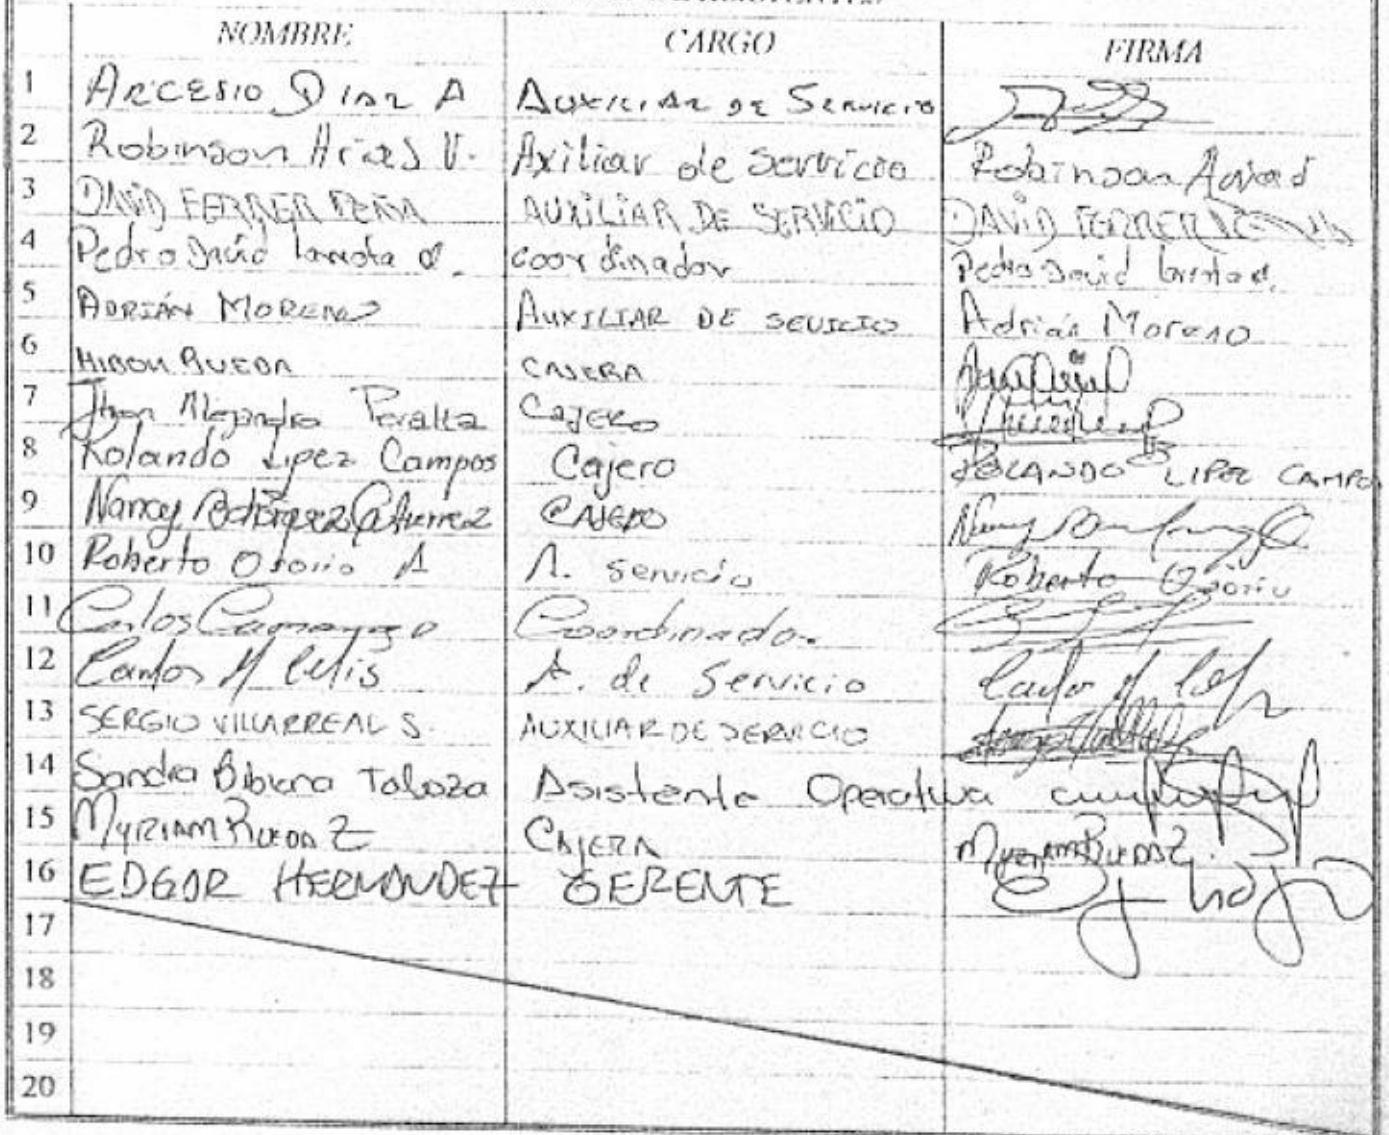 NOMBRE CARGO FIRMA
1 ARCESIO DIAZ A AUXILIAR DE SERVICIO
2 Robinson Arias V. Axiliar de servicio Robinson
3 DAVID FERRER PEÑA AUXILIAR DE SERVICIO DAVID FERRER
4 Pedro David Larrota coordinador Pedro David
5 ADRIÁN MORENO AUXILIAR DE SEVICIO Adrián Moreno
6 RUEDA CAJERA
7 Jhon Alejandro Peralta CAJERO
8 Rolando Lipez Campos Cajero ROLANDO LIPEZ CAMPO
9 Nancy CAJERO
10 Roberto Osorio A A. servicio Roberto Osorio
11 Carlos Camargo Coordinador
12 Carlos M Celis A. de Servicio Carlos M
13 SERGIO VILLARREAL S. AUXILIAR DE SERVICIO
14 Sandra Bibiana Toloza Asistente Operativa
15 MYRIAM RUEDA Z CAJERA MYRIAM RUEDA Z.
16 EDGAR HERNANDEZ GERENTE
17
18
19
20